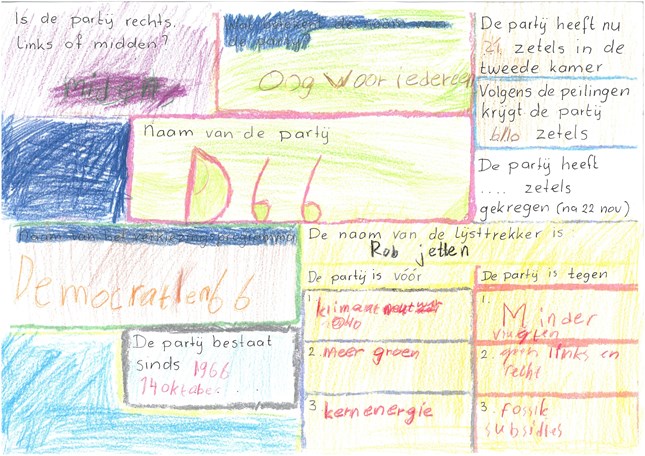 Is de partij rechts..
Links of midden?
Oog Woor iedereen
De partij heeft nu
zetels in de
tweede kamer
Volgens de peilingen
krijgt de partij
zetels
Naam van de partij
D66
De partij heeft
.... zetels
gekregen (na 22 nov)
Democratien66
De naam van de lijsttrekker is
Rob jetten
De partij bestaat
sinds 1966
14 oktober....
De partij is vóór
1 klimaat
2. meer groen
3 kernenergie
De partij is tegen
1. Minder
2. links en
recht
3. fossile
subsidies